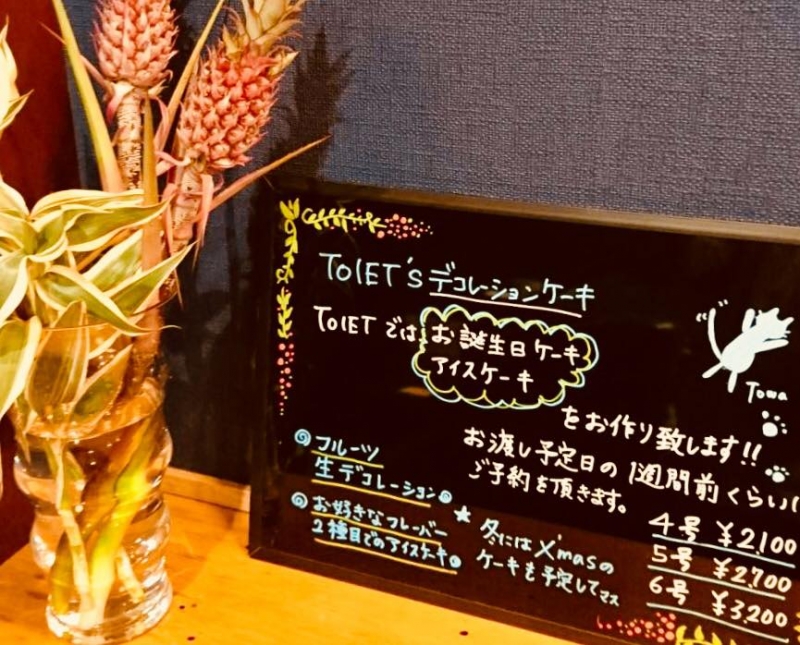 TolET'sデコレーションケーキ
TolETでは、お誕生日ケーキ
アイスケーキ
をお作り致します!!
お渡し予定日の1週間前くらい
ご予約を頂きます。
フルーツ
生デコレーション
お好きなフレーバー
2種目でのアイスケーキ
★ 冬にはX'masの
ケーキも予定してマス
Towa
4号 ¥2,100
5号 ¥2,700
6号 ¥3,200